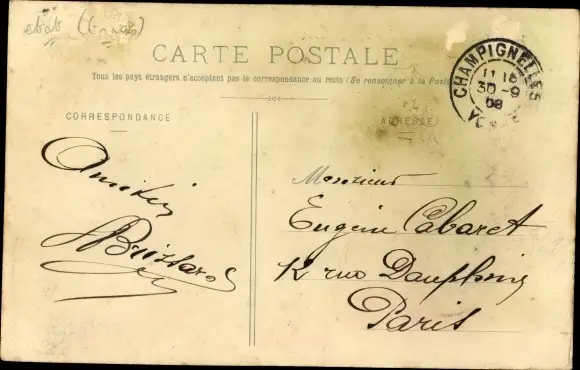 CARTE POSTALE
Tous les pays étrangers n'acceptent pas la correspondance au recto (Se renseigner à la Poste
CHAMPIGNELLES
30 -9
08
CORRESPONDANCE
ADRESSE
Amitiés
Monsieur
Eugène Cabaret
12 rue Dauphine
Paris